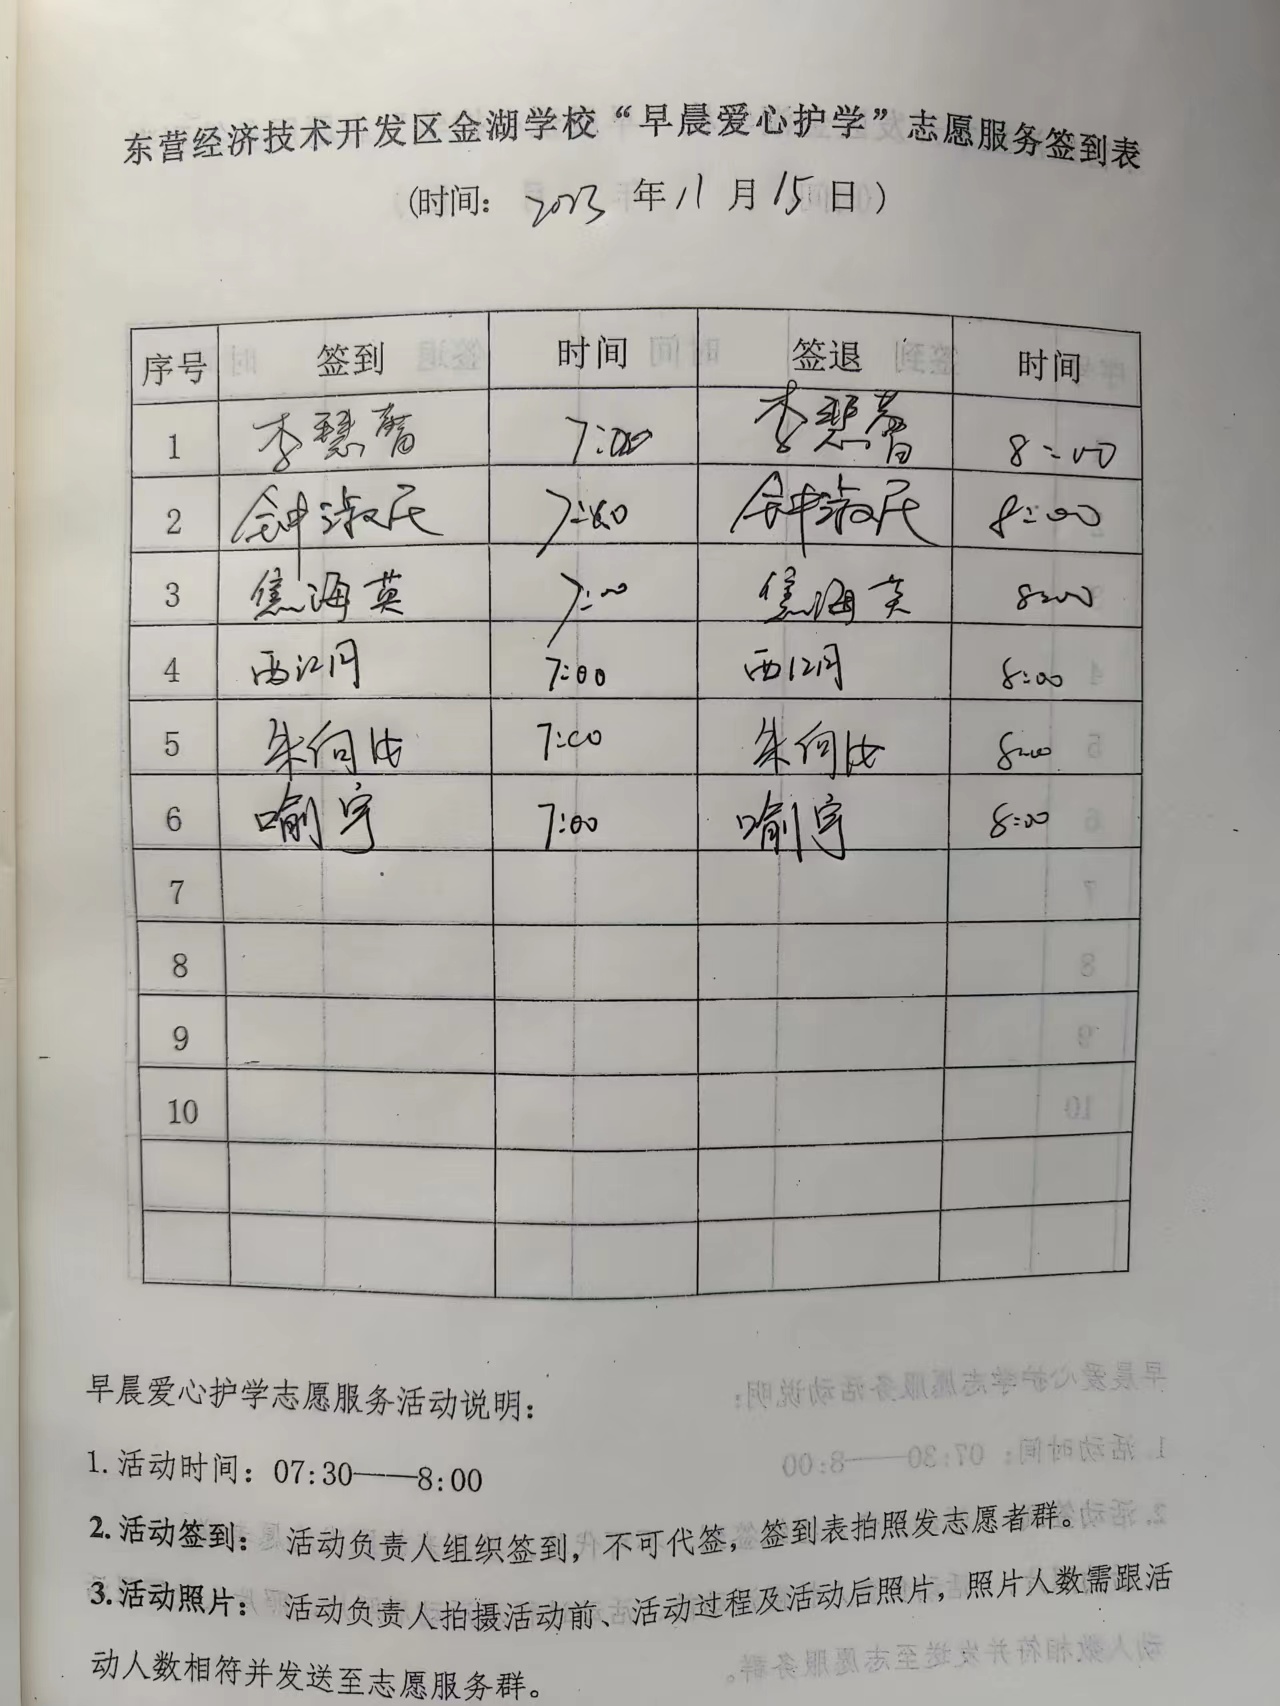 东营经济技术开发区金湖学校“早晨爱心护学”志愿服务签到表
(时间: 2023 年 11 月 15 日)
序号 签到 时间 签退 时间
1 李慧菁 7:00 李慧菁 8:00
2 钟淑民 7:00 钟淑民 8:00
3 焦海英 7:00 焦海英 8:00
4 西江月 7:00 西江月 8:00
5 朱向 7:00 朱向 8:00
6 喻宇 7:00 喻宇 8:00
7
8
9
10
早晨爱心护学志愿服务活动说明:
1. 活动时间: 07:30——8:00
2. 活动签到: 活动负责人组织签到, 不可代签, 签到表拍照发志愿者群。
3. 活动照片: 活动负责人拍摄活动前、活动过程及活动后照片, 照片人数需跟活
动人数相符并发送至志愿服务群。